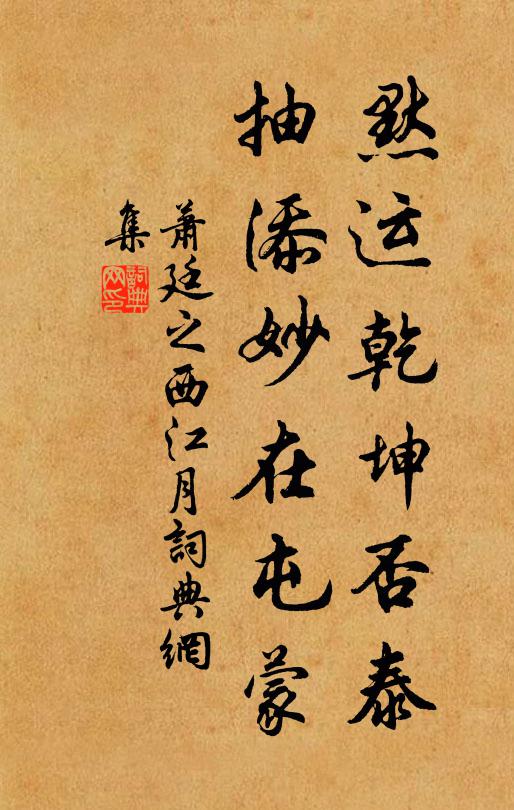 默运乾坤否泰
抽添妙在屯蒙
萧廷之西江月詞典網
集
詞典
网印